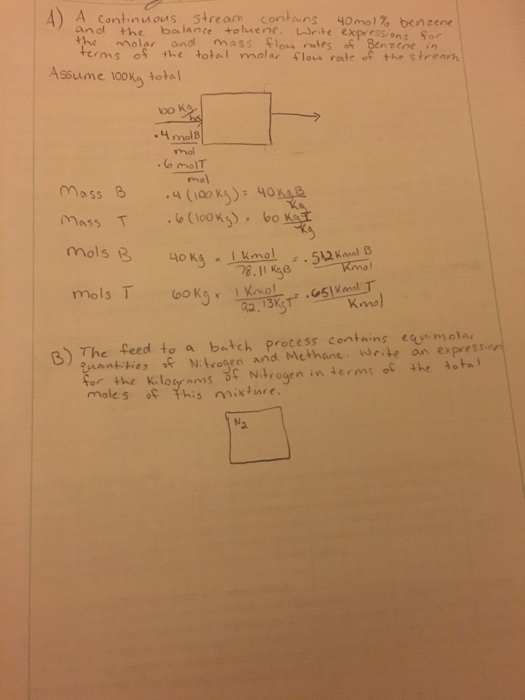 A) A continuous stream contains 40mol% benzene
and the balance toluene. Write expressions for
the molar and mass flow rates of Benzene in
terms of the total molar flow rate of the stream
Assume 100Kg total
100 Kg/hr
.4 molB/mol
.6 molT/mol
Mass B .4(100Kg) = 40 KgB/Kg
Mass T .6(100Kg) = 60 KgT/Kg
Mols B 40Kg × 1 Kmol/78.11 KgB = .512 Kmol B/Kmol
mols T 60Kg × 1 Kmol/92.13KgT = .651 Kmol T/Kmol
B) The feed to a batch process contains equimolar
quantities of Nitrogen and Methane. Write an expression
for the Kilograms of Nitrogen in terms of the total
moles of this mixture.
N2